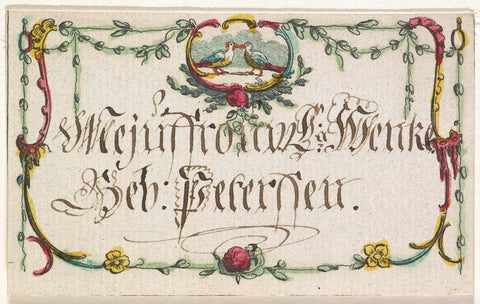 Mejuffrouw C: Wenke
Geb: Peterssen.